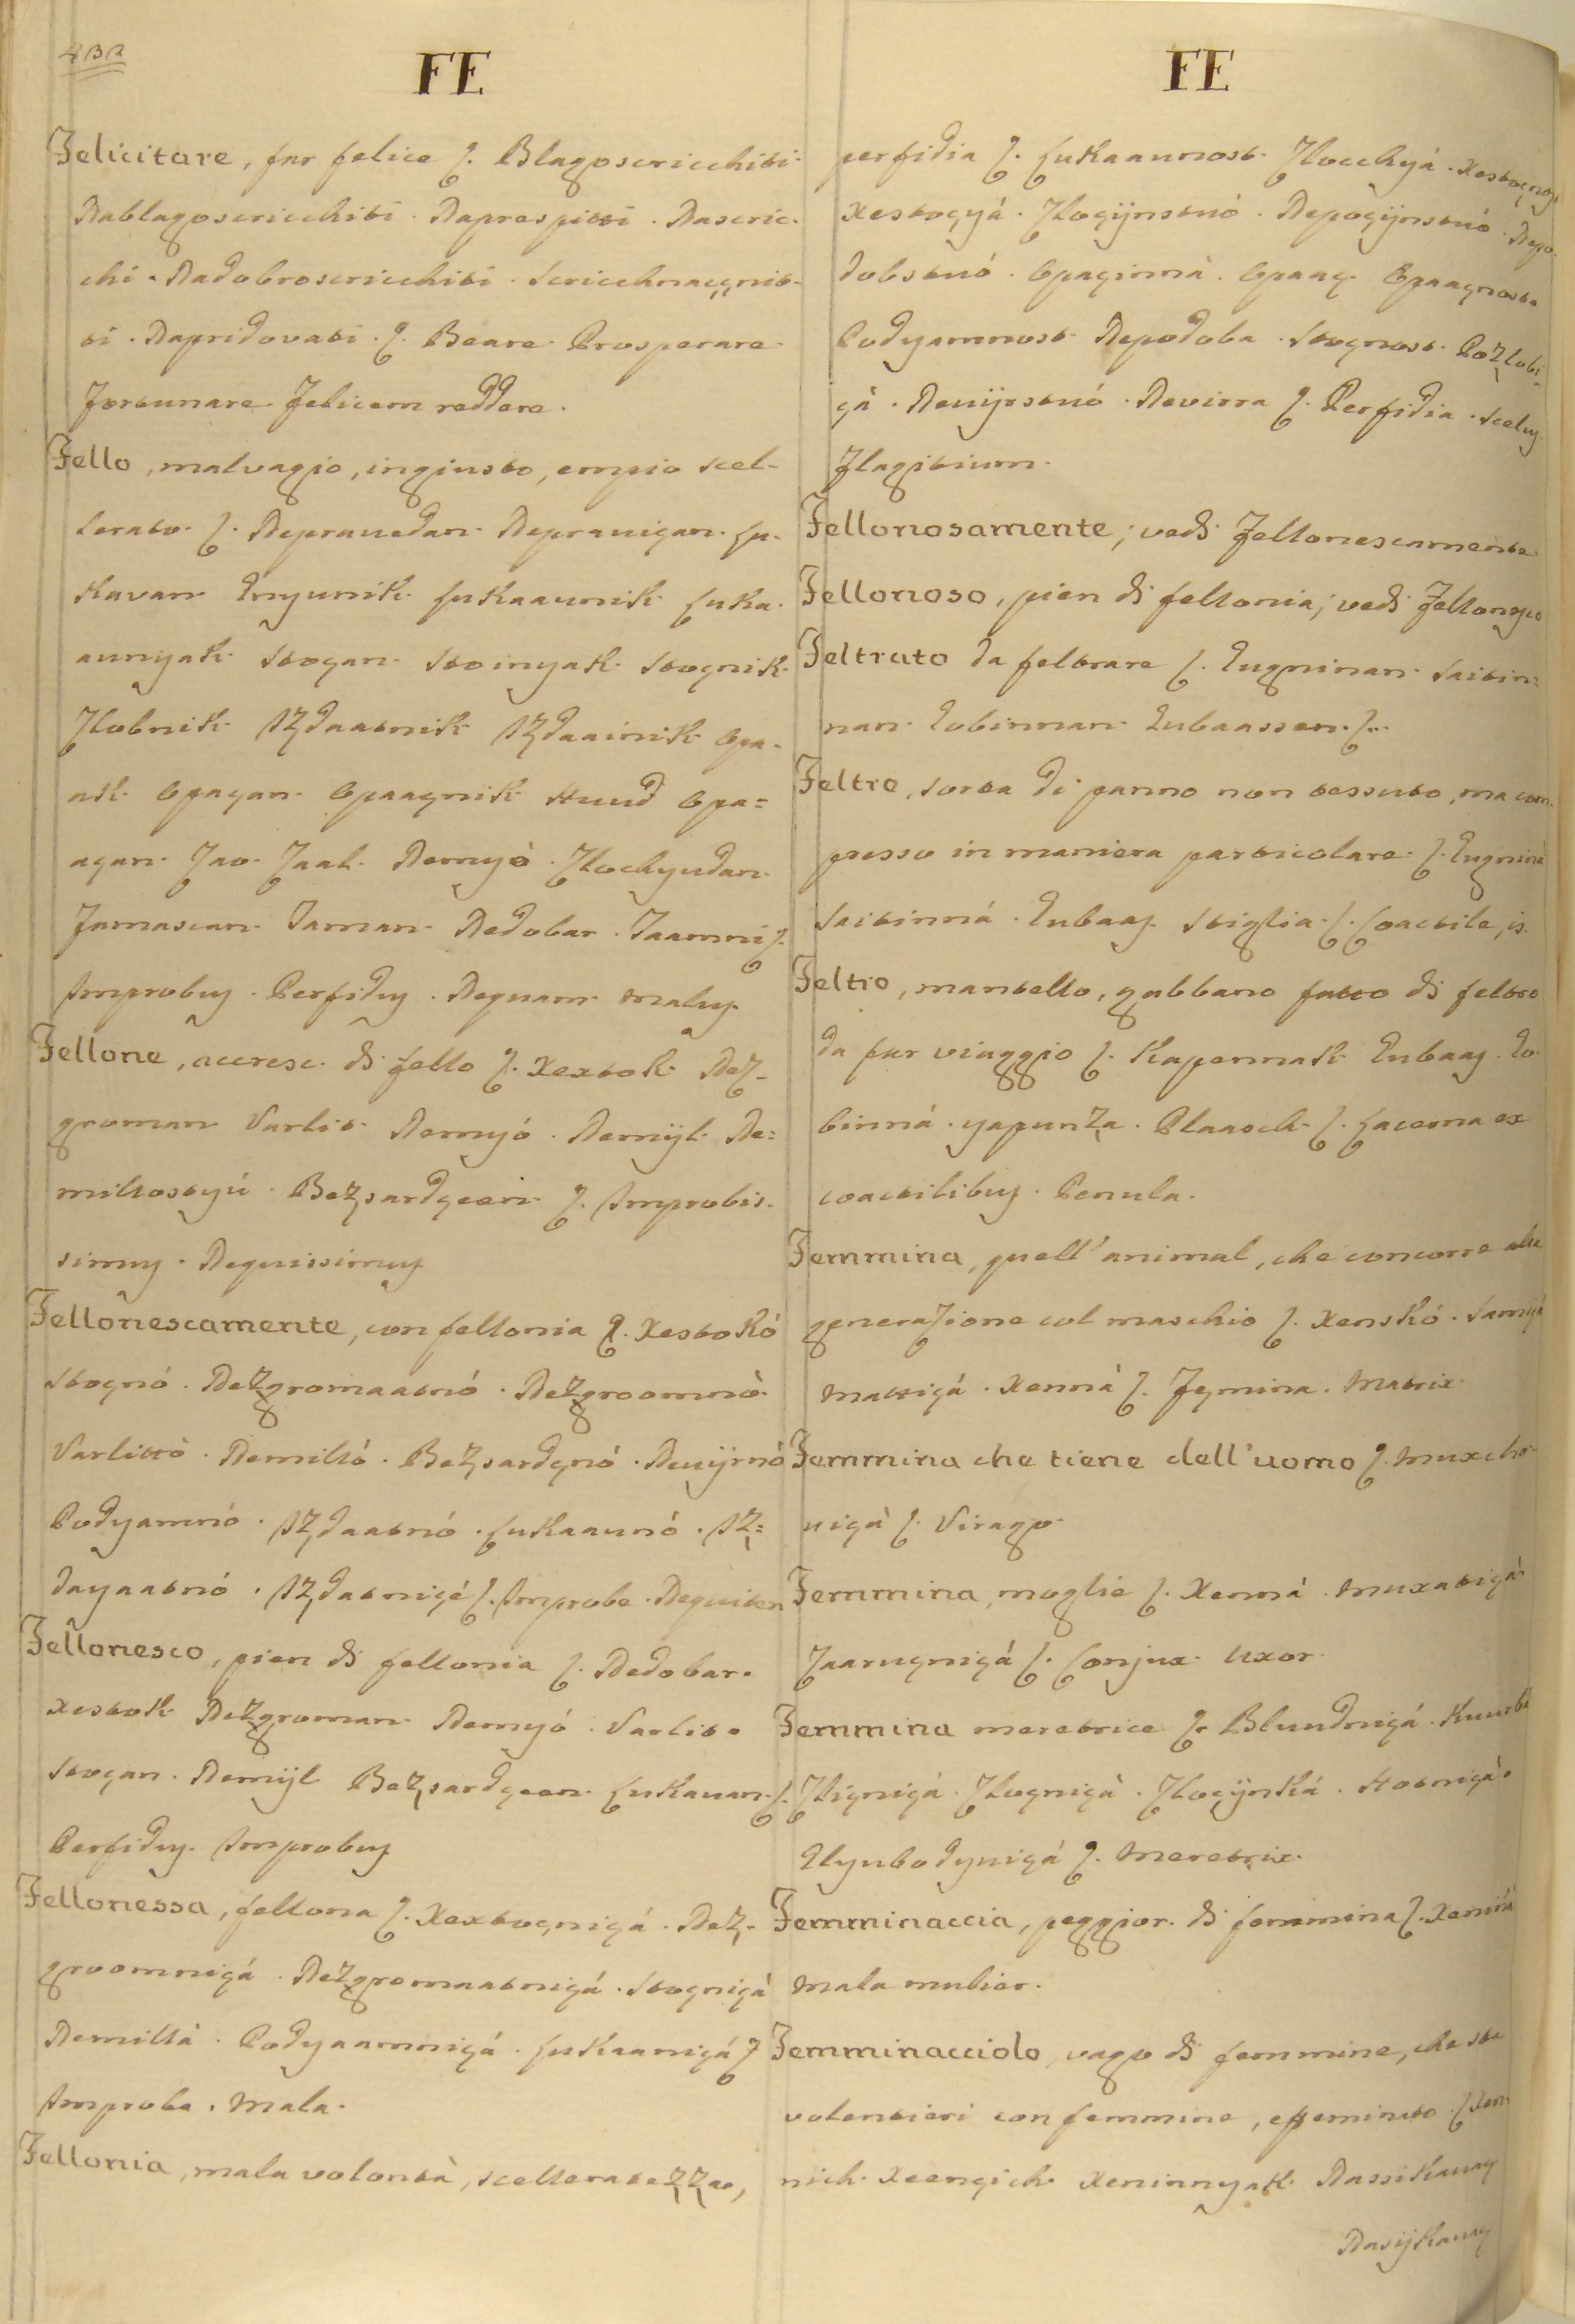 432
FE
Felicitare, far felice ſ. Blagosericchiti
Nablagosericchiti. Naprospitti. Naseric-
chi. Nadobrosericchiti. Sericchnaçnit-
ti. Napridovati. ſ. Beare. Prosperare
Fortunare Felicem reddere.
Fello, malvagio, ingiusto, empio scel-
lerato ſ. Nepravedan. Nepravigan. Lu-
kavan Enyunik Lukaaunik Luka-
aunyak Stogan. Stoinyak. Stognik
Zlobnik Izdaatnik Izdaainik Opa-
ak Opagan. Opaagnik Huud Opa=
agan. Zao. Zaal. Nemyò. Zlochyudan
Jamascan. Taman. Nedobar. Taamni ſ.
Improbus. Perfidus. Nequam malus.
Fellone, accresc. di fello ſ. Xestok Nez-
groman Varlit. Nemyó. Nemijl. Ne=
milostyú. Bezsardgeen. ſ. Improbis-
simus. Nequissimus
Fellonescamente, con fellonia ſ. Xestokó
Stognó. Nezgromaatnó. Nezgroomnò
Varlittò. Nemiló. Bezsardgnó. Nevijrnó
Podyamnó. Izdaatnó. Lukaaunó. Iz=
dayaatnó. Izdatnigé ſ. Improbe. Nequiter
Fellonesco, pien di fellonia ſ. Nedobar.
Xestok Nezgroman Nemyó. Varlit.
Stogan. Nemijl Bezsardgeen. Lukauan. ſ.
Perfidus. Improbus
Fellonessa, fellona ſ. Xestognigá. Nez-
groomnigá. Nezgromaatnigá. Stognigá
Nemillà. Podyaamnigá. Lukaanigá ſ
Improba. Mala.
Fellonia, mala volontà, scelleratezza,
FE
perfidia ſ. Lukaaunost. Zlocchyá. Xestognost
Xestogyá. Zlogijnstuó. Nepogijnstuó. Nepo-
dobstuó. Opaginná. Opaag. Opaagnosta
Podyamnost Nepodoba. Stognost. Pozlobi-
gá. Nevijrstuó. Nevirra ſ. Perfidia. Scelus
Flagitium.
Fellonosamente; vedi Fellonescamente
Fellonoso, pien di fellonia; vedi Fellonesco
Feltrato da feltrare ſ. Eugninan. Saitin=
nan. Eobinnan. Eubaassen. ſ...
Feltro, sorta di panno non tessuto, ma com-
presso in maniera particolare. ſ. Eugniná
Saitinná. Eubaas. Stiglia. ſ. Coactile, is.
Feltro, mantello, gabbano fatto di feltro
da far viaggio ſ. Kapennak Eubaas. Eo-
binná. yapunza. Plaasch. ſ. Lacerna ex
coactilibus. Penula.
Femmina, quell'animal, che concorre alla
generazione col maschio ſ. Xenskó. Samigá
Mattigá. Xenná ſ. Femina. Matrix
Femmina che tiene dell'uomo ſ. Muxcho-
nigá ſ. Virago
Femmina, moglie ſ. Xenná. Muxatigá
Zaarugnigá ſ. Conjux. Uxor
Femmina meretrice ſ. Bluudnigá. Kuurba
Zligniga. Zlogniga. Zlogijnká. Hotnigà.
Elyubodynigá ſ. Meretrix.
Femminaccia, peggior. di femmina ſ. Xeninà
Mala mulier.
Femminacciolo, vago di femmine, che sta
volentieri con femmine, effeminato. ſ Xen
nich. Xeengich. Xeninnyak. Nassikauag
Nasijkauag